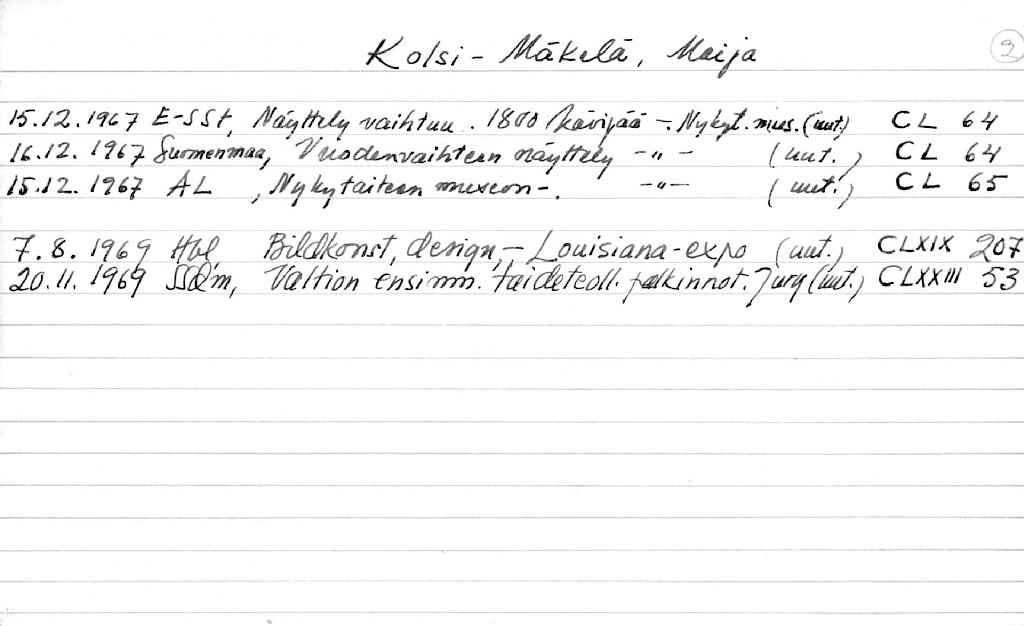 Kolsi - Mäkelä, Maija 2
15.12.1967 E-SSt, Näyttely vaihtuu. 1800 kävijää - Nykyt. mus. (uut.) CL 64
16.12.1967 Suomenmaa, Vuodenvaihteen näyttely -"- (uut.) CL 64
15.12.1967 AL , Nykytaiteen museon-. -"- (uut.) CL 65
7.8.1969 Hbl, Bildkonst, design, - Louisiana-expo (uut.) CLXIX 207
20.11.1969 SSdm, Valtion ensimm. taideteoll. palkinnot. Jury (uut.) CLXXIII 53